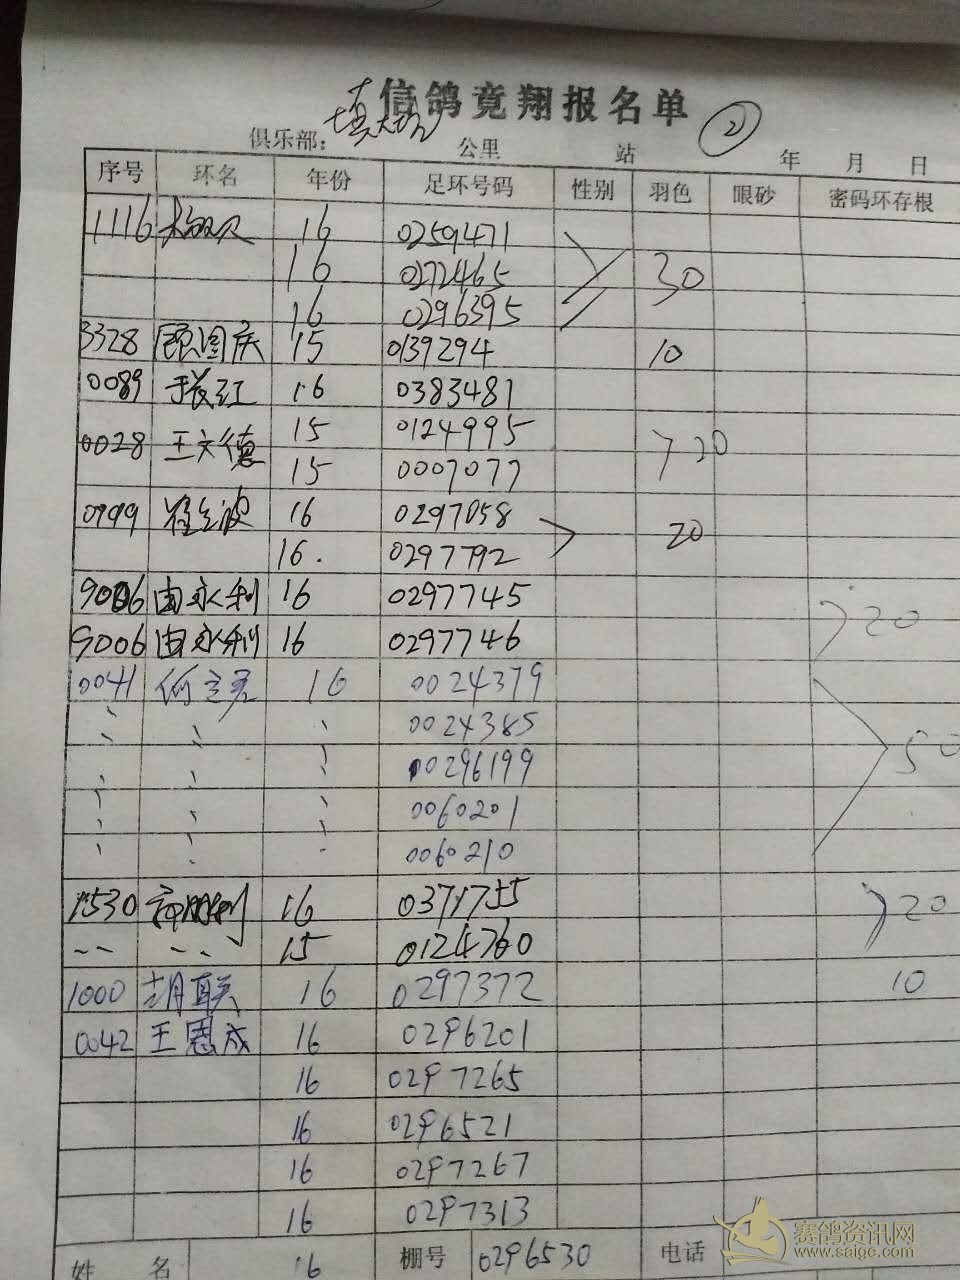 信鸽竞翔报名单 ②
俱乐部: 公里 站 年 月 日
序号 环名 年份 足环号码 性别 羽色 眼砂 密码环存根
1116 16 0259471
16 0272465 30
16 0296395
3328 顾国庆 15 0139294 10
0089 张红 16 0383481
0028 王文德 15 0124995 20
15 0007077
0999 16 0297058 20
16. 0297792
9006 由永利 16 0297745 20
9006 由永利 16 0297746
0041 16 0024379
0024385
00296199 50
0060201
0060210
1530 16 0371755 20
-- -- 15 0124760
1000 胡联 16 0297372 10
0042 王恩成 16 0296201
16 0297265
16 0296521
16 0297267
16 0297313
姓 名 16 棚号 0296530 电话
赛鸽资讯网
www.saigc.com